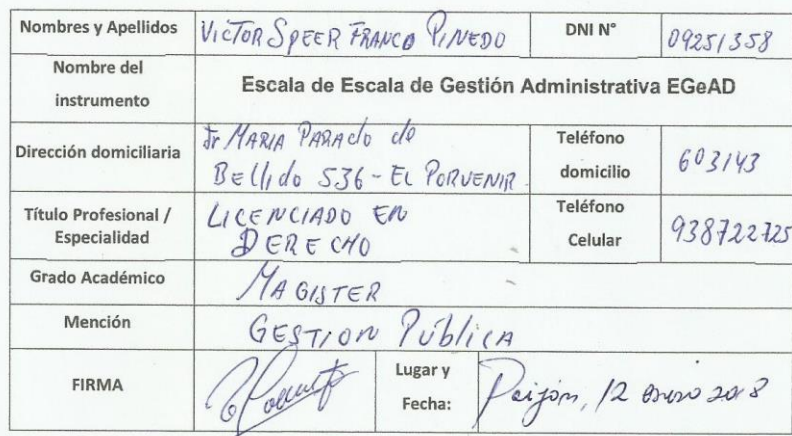 Nombres y Apellidos VICTOR SPEER FRANCO PINEDO DNI N° 09251358
Nombre del
instrumento
Escala de Escala de Gestión Administrativa EGeAD
Dirección domiciliaria
Jr MARIA PARADO de
BELLido 536 - EL PORVENIR
Teléfono
domicilio
603143
Título Profesional /
Especialidad
LICENCIADO EN
DERECHO
Teléfono
Celular
938722725
Grado Académico MAGISTER
Mención GESTION Pública
FIRMA
Lugar y
Fecha:
Paiján, 12 enero 2018